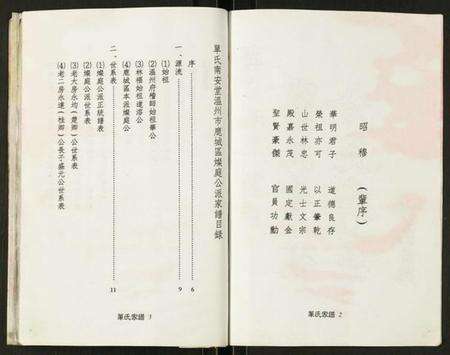 昭穆 (輩序)
華明君子 道德良存
榮祖亦可 以正肇乾
山世林忠 光士文宗
殿嘉永茂 國定獻金
聖賢豪傑 官員功勳
單氏家譜 2
單氏南安堂溫州市鹿城區燦庭公派家譜目錄
序 6
一、源流 9
⑴始祖
⑵溫州府始祖華公
⑶林橋始祖達公
⑷鹿城區本派燦庭公
二、世系表 11
⑴燦庭公派正統表
⑵燦庭公派世系表
⑶老大房永均(楚卿)公世系表
⑷老二房永連(桂卿)公長子盛元公世系表
單氏家譜 3